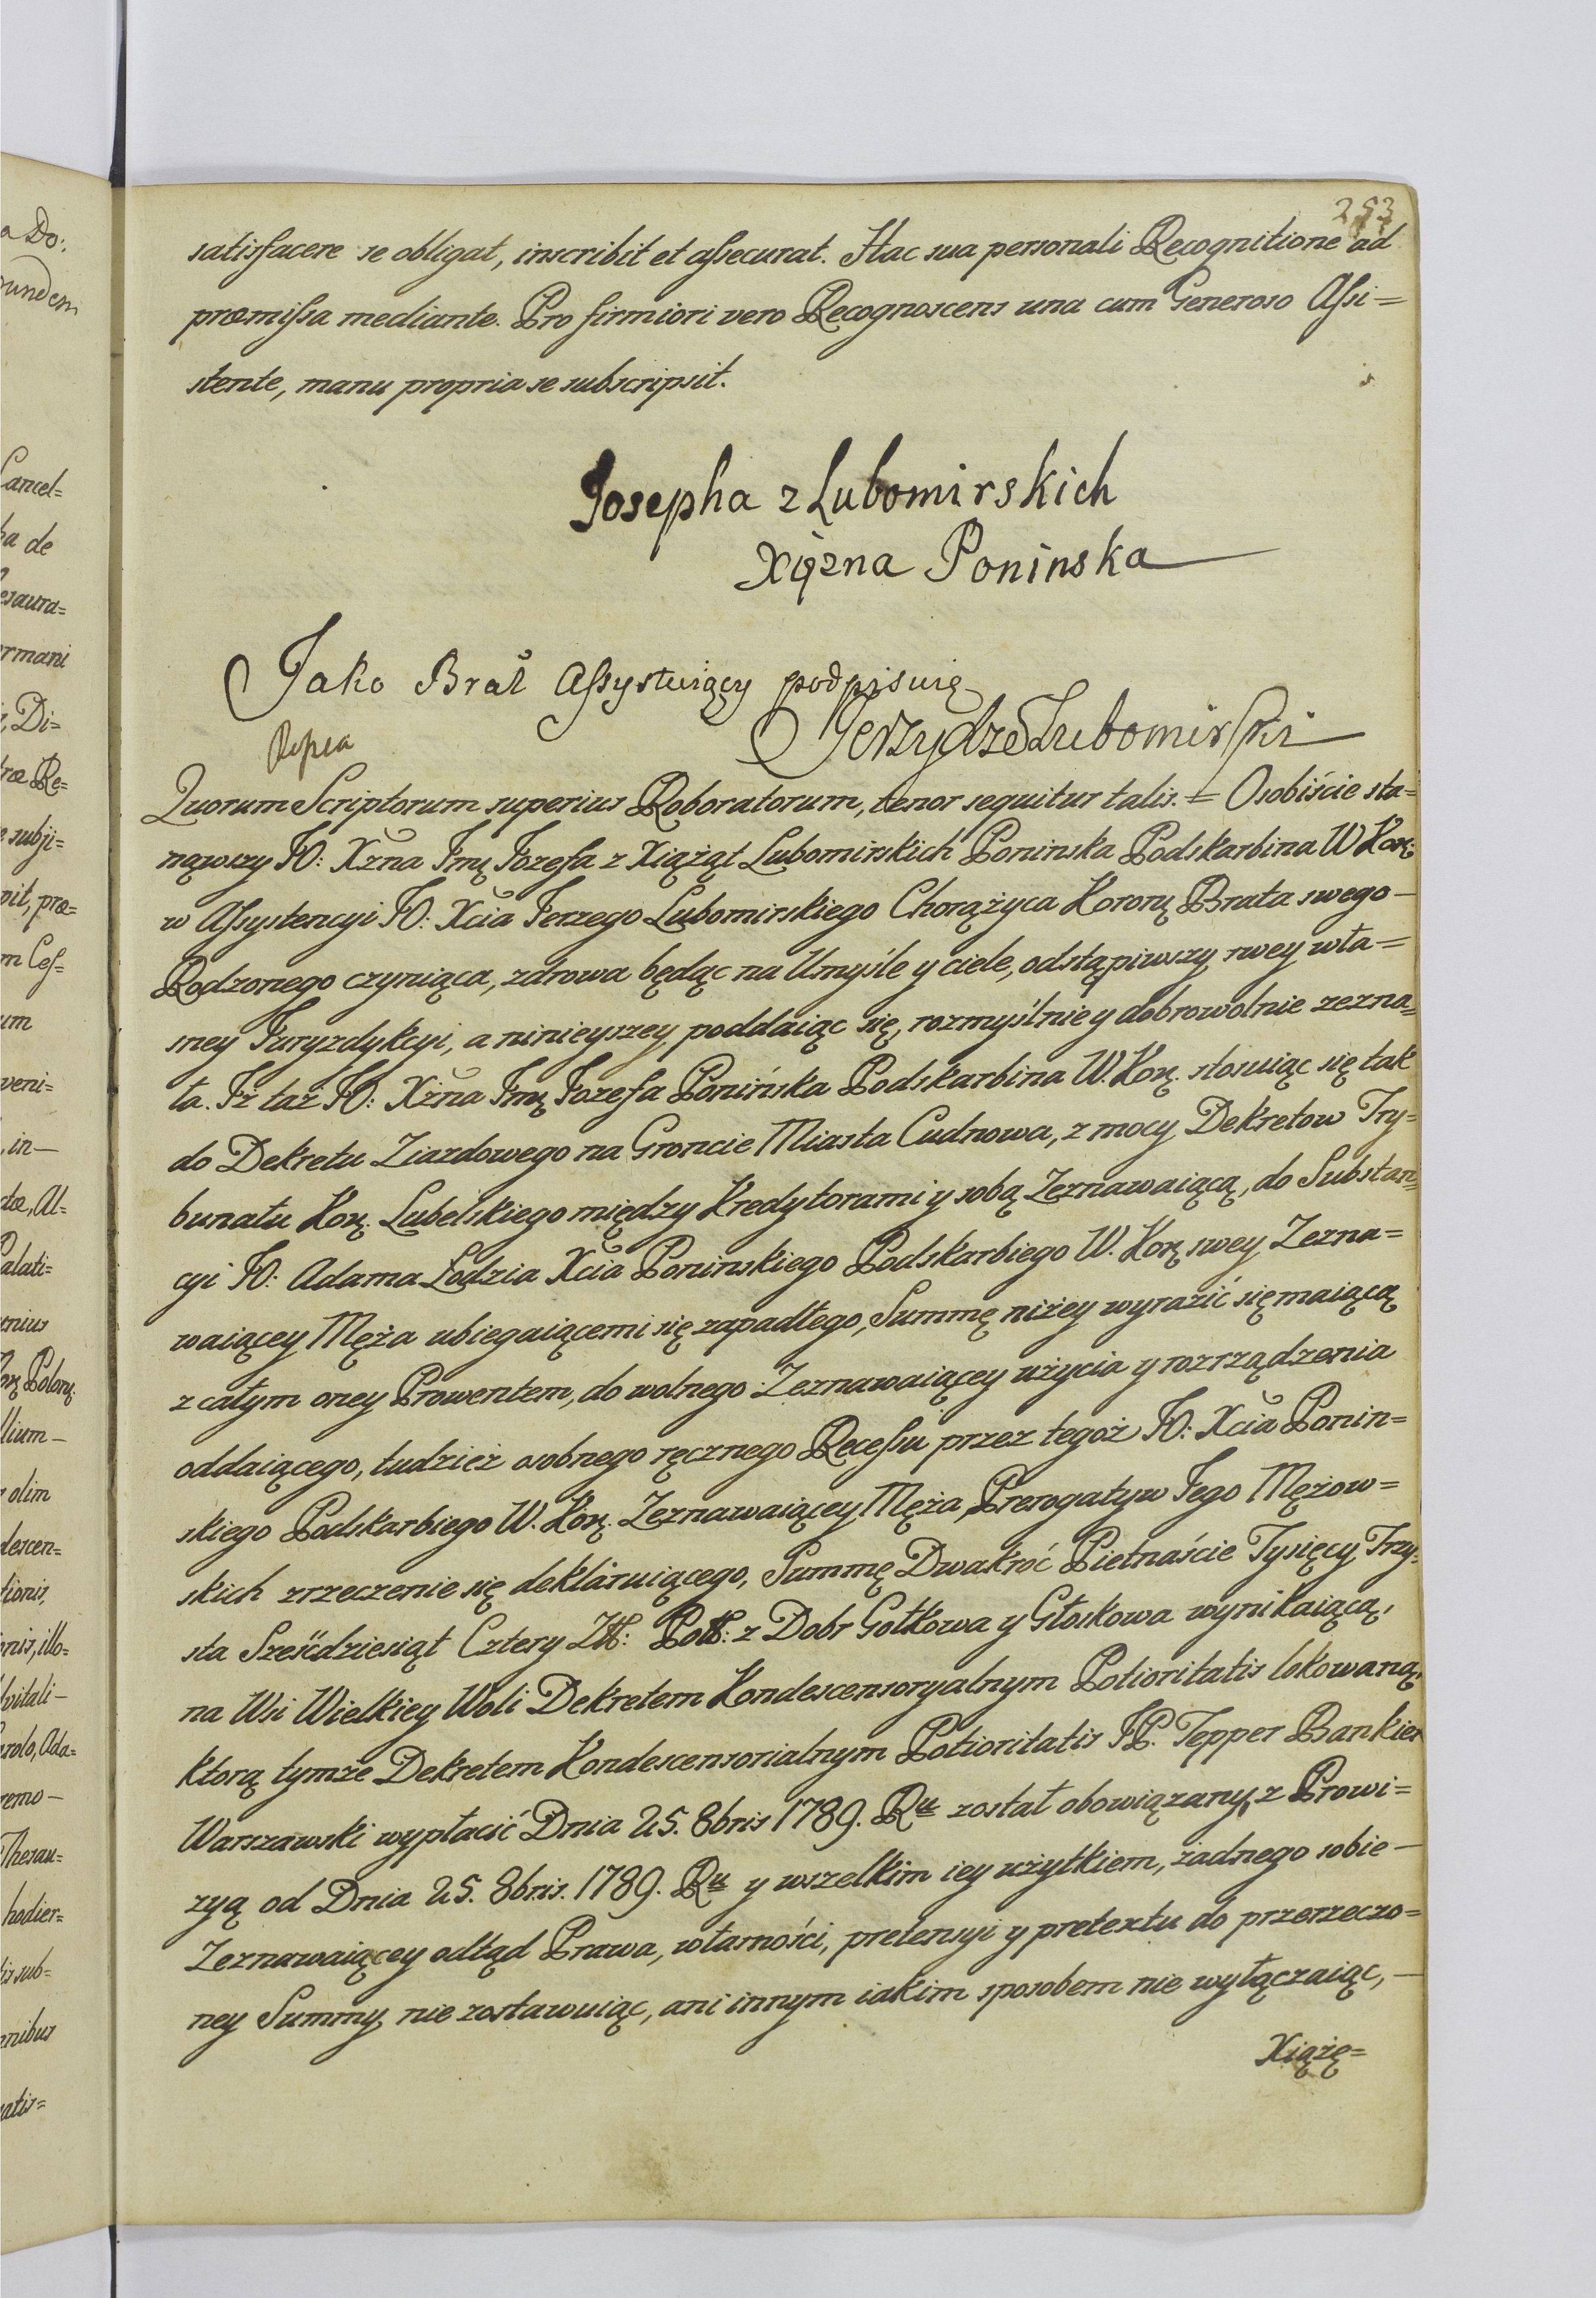 253
satisfacere se obligat, inscribit et assecurat. Hac sua personali Recognitione ad
præmissa mediante. Pro firmiori vero Recognoscens una cum Generoso Assi=
stente, manu propria se subscripsit.
Josepha z Lubomirskich
Xięzna Poninska
Jako Brat Assystuiący podpisuię
Jerzy Lubomirski
Quorum Scriptorum superius Roboratorum, tenor sequitur talis. = Osobiście sta=
nąwszy JO: Xżna Jmę Jozefa z Xiążąt Lubomirskich Poninska Podskarbina W Korę:
w Assystencyi JO: Xcia Jerzego Lubomirskiego Chorążyca Koronę Brata swego —
Rodzonego czyniąca, zdrowa będąc na Umyśle y ciele, odstąpiwszy swey wła=
sney Juryzdykcyi, a ninieyszey poddaiąc się, rozmyślnie y dobrowolnie zezna=
ła. Iż taż JO: Xżna Jmę Jozefa Ponińska Podskarbina W. Korę. stosuiąc się tak
do Dekretu Ziazdowego na Groncie Miasta Cudnowa, z mocy Dekretow Try=
bunału Korę. Lubelskiego między Kredytorami y sobą Zeznawaiącą, do Substan=
cyi JO: Adama Łodzia Xcia Poninskiego Podskarbiego W. Korę swey Zezna=
waiącey Męża ubiegaiącemi się zapadłego, Summę niżey wyrazić się maiącą
z całym oney Prowentem, do wolnego Zeznawaiącey użycia y rozrządzenia
oddaiącego, tudzież osobnego ręcznego Recessu przez tegoż JO: Xcia Ponin=
skiego Podskarbiego W. Korę. Zeznawaiącey Męża Prerogatyw Jego Mężow=
skich zrzeczenie się deklaruiącego, Summę Dwakroć Pietnaście Tysięcy Trzy=
sta Sześćdziesiąt Cztery Złł: Poll: z Dobr Gołkowa y Głoskowa wynikaiącą,
na Wsi Wielkiey Woli Dekretem Kondescensoryalnym Potioritatis lokowaną,
ktorą tymże Dekretem Kondescensorialnym Potioritatis JP. Tepper Bankier
Warszawski wypłacić Dnia 25. 8bris 1789. Ru został obowiązany, z Prowi=
zyą od Dnia 25. 8bris. 1789. Ru y wszelkim iey użytkiem, żadnego sobie —
Zeznawaiącey odtąd Prawa, własności, pretensyi y pretextu do przerzeczo=
ney Summy nie zostawuiąc, ani innym iakim sposobem nie wyłączaiąc, —
Xiążę=